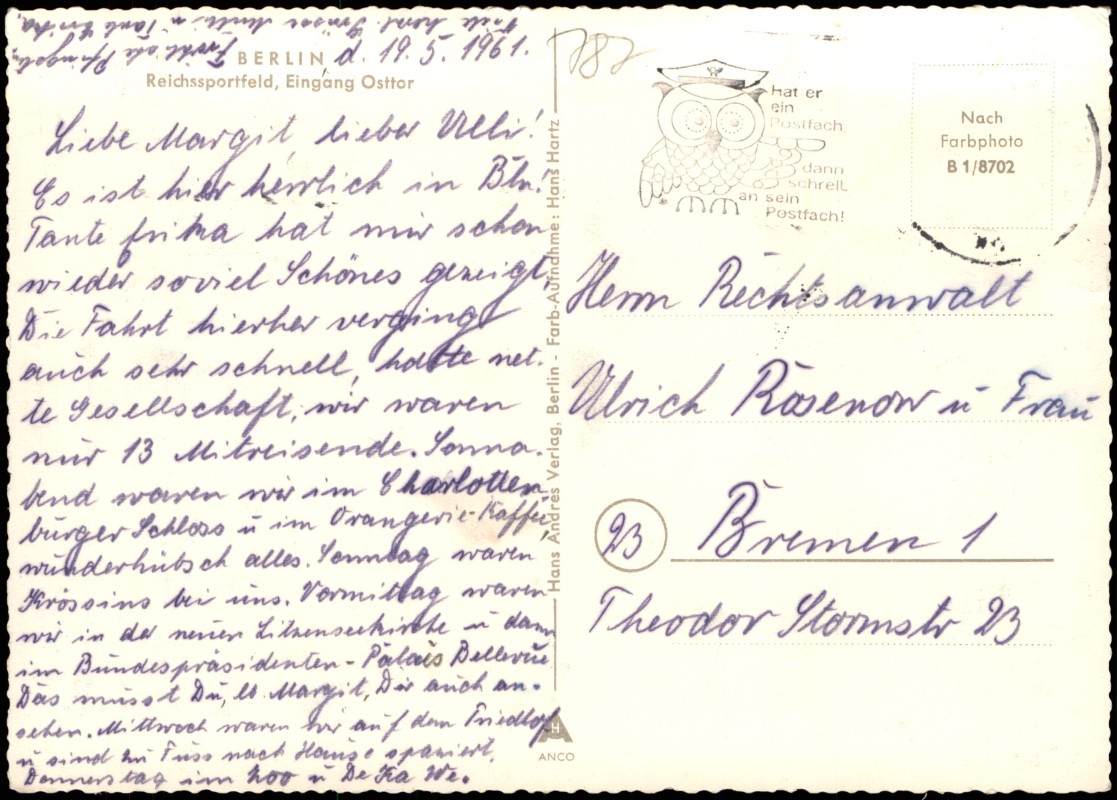 BERLIN d. 19.5.1961.
Reichssportfeld, Eingang Osttor
Liebe Margit, lieber Ulli!
Es ist hier herrlich in Bln!
Tante Erika hat mir schon
wieder soviel Schönes gezeigt,
Die Fahrt hierher verging
auch sehr schnell, hatte net-
te Gesellschaft, wir waren
nur 13 Mitreisende. Sonna-
bend waren wir im Charlotten-
burger Schloss u im Orangerie-Kaffee,
wunderhübsch alles. Sonntag waren
Krössins bei uns. Vormittag waren
wir in der neuen Litzenseekirche u dann
im Bundespräsidenten-Palais Bellevue
Das musst Du, lb Margit, Dir auch an-
sehen. Mittwoch waren wir auf dem Friedhof
u sind zu Fuss nach Hause spaziert,
Donnerstag im Zoo u De Ka We.
Frohliche Pfingsten,
Viele herzl. Grüsse Mutti u Tante Erika,
Hans Andres Verlag, Berlin - Farb-Aufnahme: Hans Hartz
H
ANCO
787
Hat er
ein
Postfach,
dann
schreib
an sein
Postfach!
Nach
Farbphoto
B 1/8702
Herrn Rechtsanwalt
Ulrich Rösenow u Frau
23 Bremen 1
Theodor Stormstr 23